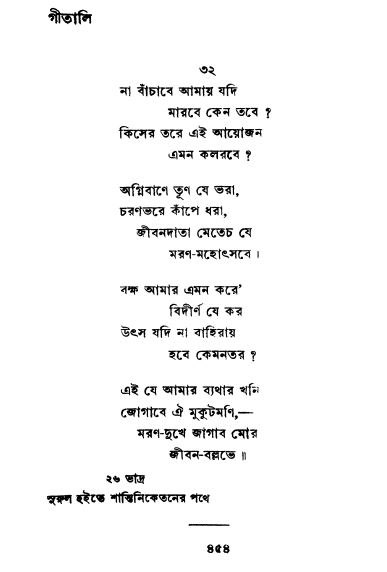 গীতালি
৩২
না বাঁচাবে আমায় যদি
মারবে কেন তবে ?
কিসের তরে এই আয়োজন
এমন কলরবে ?
অগ্নিবাণে তূণ যে ভরা,
চরণভরে কাঁপে ধরা,
জীবনদাতা মেতেচ যে
মরণ-মহোৎসবে ।
বক্ষ আমার এমন করে'
বিদীর্ণ যে কর
উৎস যদি না বাহিরায়
হবে কেমনতর ?
এই যে আমার ব্যথার খনি
জোগাবে ঐ মুকুটমণি,—
মরণ-দুখে জাগাব মোর
জীবন-বল্লভে ॥
২৬ ভাদ্র
সুরুল হইতে শান্তিনিকেতনের পথে
৪৫৪